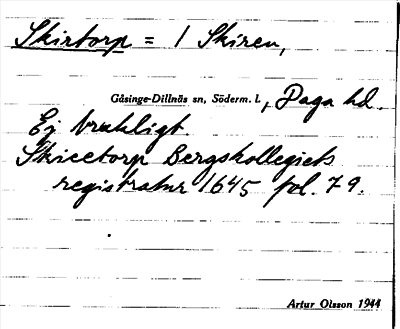 Skirtorp = 1 Skiren,
Gåsinge-Dillnäs sn, Söderm. l., Daga hd.
Ej brukligt
Skicetorp Bergskollegiets
registratur 1645 fol. 79.
Artur Olsson 1944